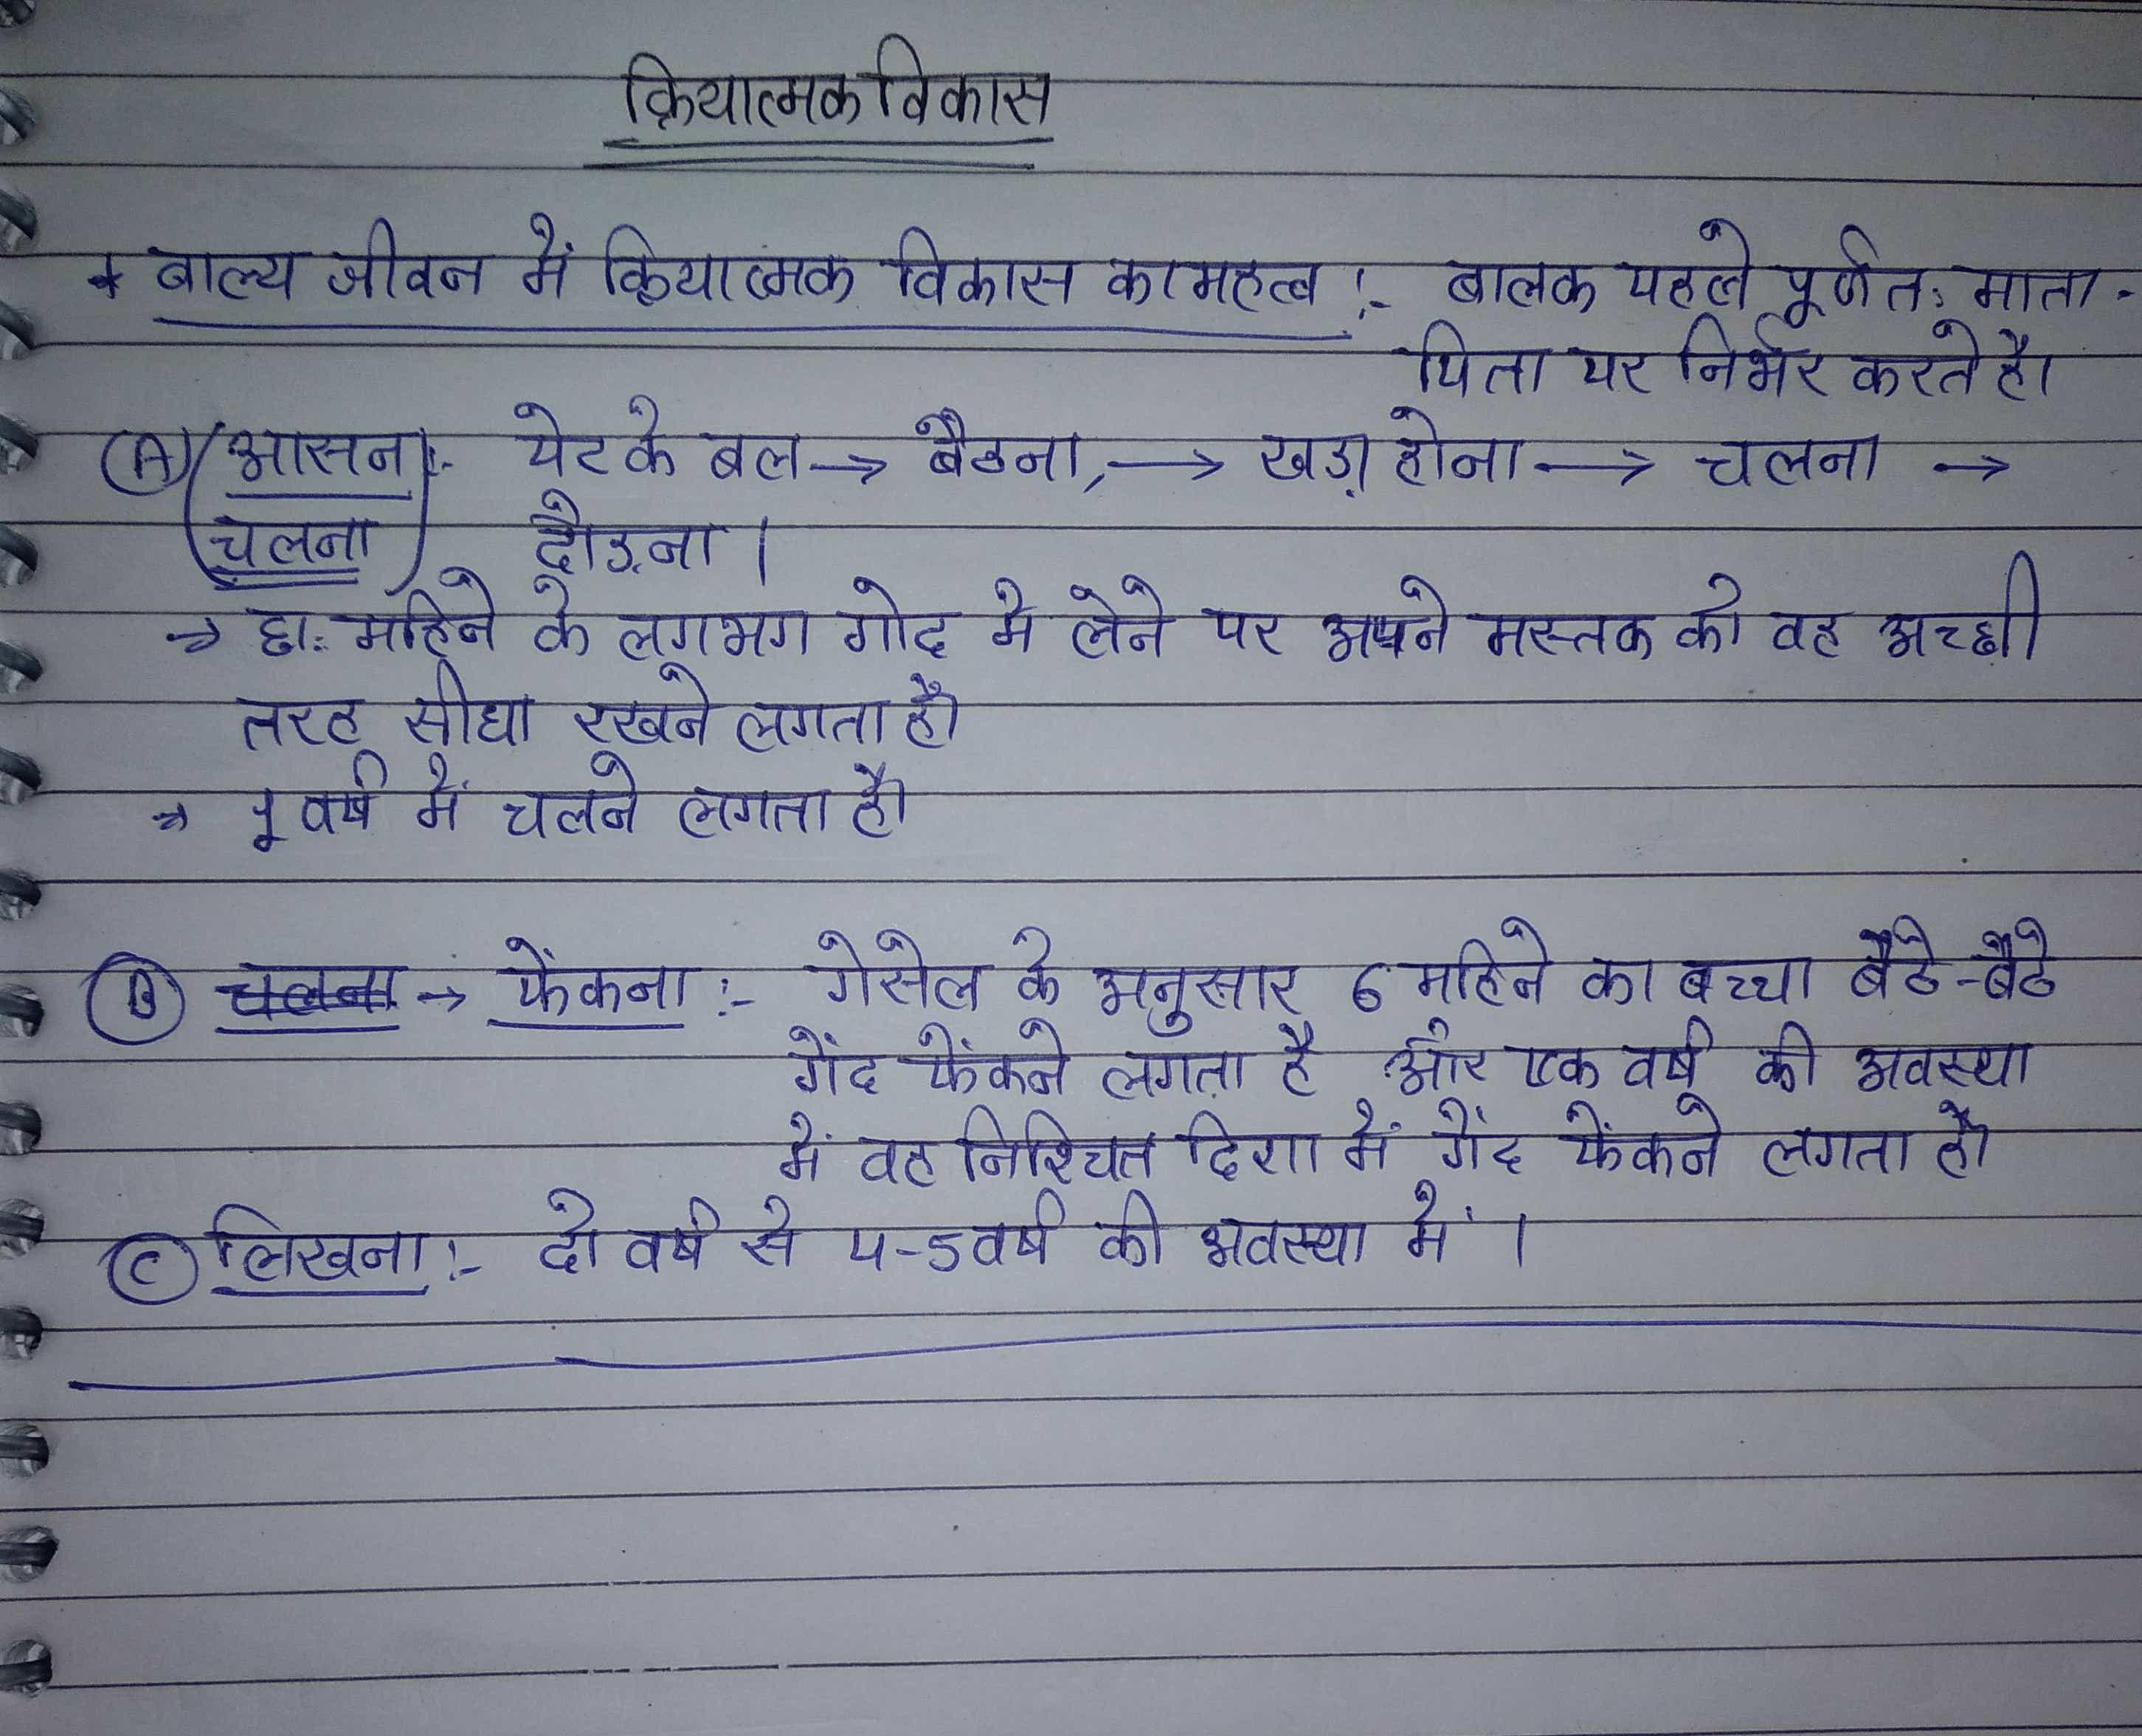 क्रियात्मक विकास
* बाल्य जीवन में क्रियात्मक विकास का महत्व :- बालक पहले पूर्णतः माता-
पिता पर निर्भर करते है।
(A) (आसन :- पेट के बल → बैठना, → खड़ा होना → चलना →
चलना) दौड़ना।
→ छः महिने के लगभग गोद मे लेने पर अपने मस्तक को वह अच्छी
तरह सीधा रखने लगता है।
→ 1 वर्ष में चलने लगता है।
(B) चलना → फेंकना :- गेसेल के अनुसार 6 महिने का बच्चा बैठे-बैठे
गेंद फेंकने लगता है और एक वर्ष की अवस्था
में वह निश्चित दिशा में गेंद फेंकने लगता है।
(C) लिखना :- दो वर्ष से 4-5 वर्ष की अवस्था में।